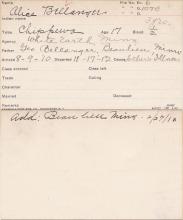 Name Alice Bellanger No.
Indian name
Tribe Chippewa Age 17 Blood 1/2
Agency White Earth, Minn
Father Geo Bellanger, Beaulieu, Minn
Arrived 8-9-10 Departed 11-17-12 Cause
Class entered Class left
Trade Outing
Character
Married Deceased
Remarks
Add: Beaulieu Minn.